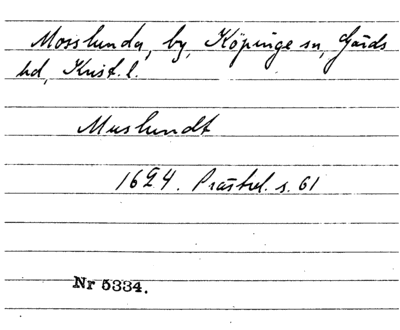 Mosslunda, by, Köpinge sn, Gärds
hd, Krist. l.
Muslundt
1624. Prästrel. s. 61
Nr 5334.